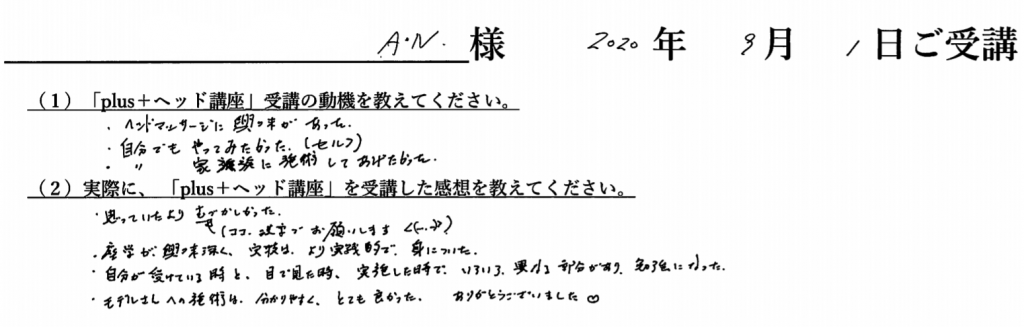 A.N. 様 2020年 9月 1日ご受講
(1)「plus+ヘッド講座」受講の動機を教えてください。
・ヘッドマッサージに興味があった。
・自分でもやってみたかった。(セルフ)
・〃 家族に施術してあげたかった。
(2)実際に、「plus+ヘッド講座」を受講した感想を教えてください。
・思っていたより むずかしかった。
(ココ、でお願いします
・座学が、興味深く、実技は、より実践的で、身についた。
・自分が受けている時と、目で見た時、実施した時で、いろいろ、異なる部分があり、勉強になった。
・モデルさんへの施術は、分かりやすく、とても良かった。 ありがとうございました♡